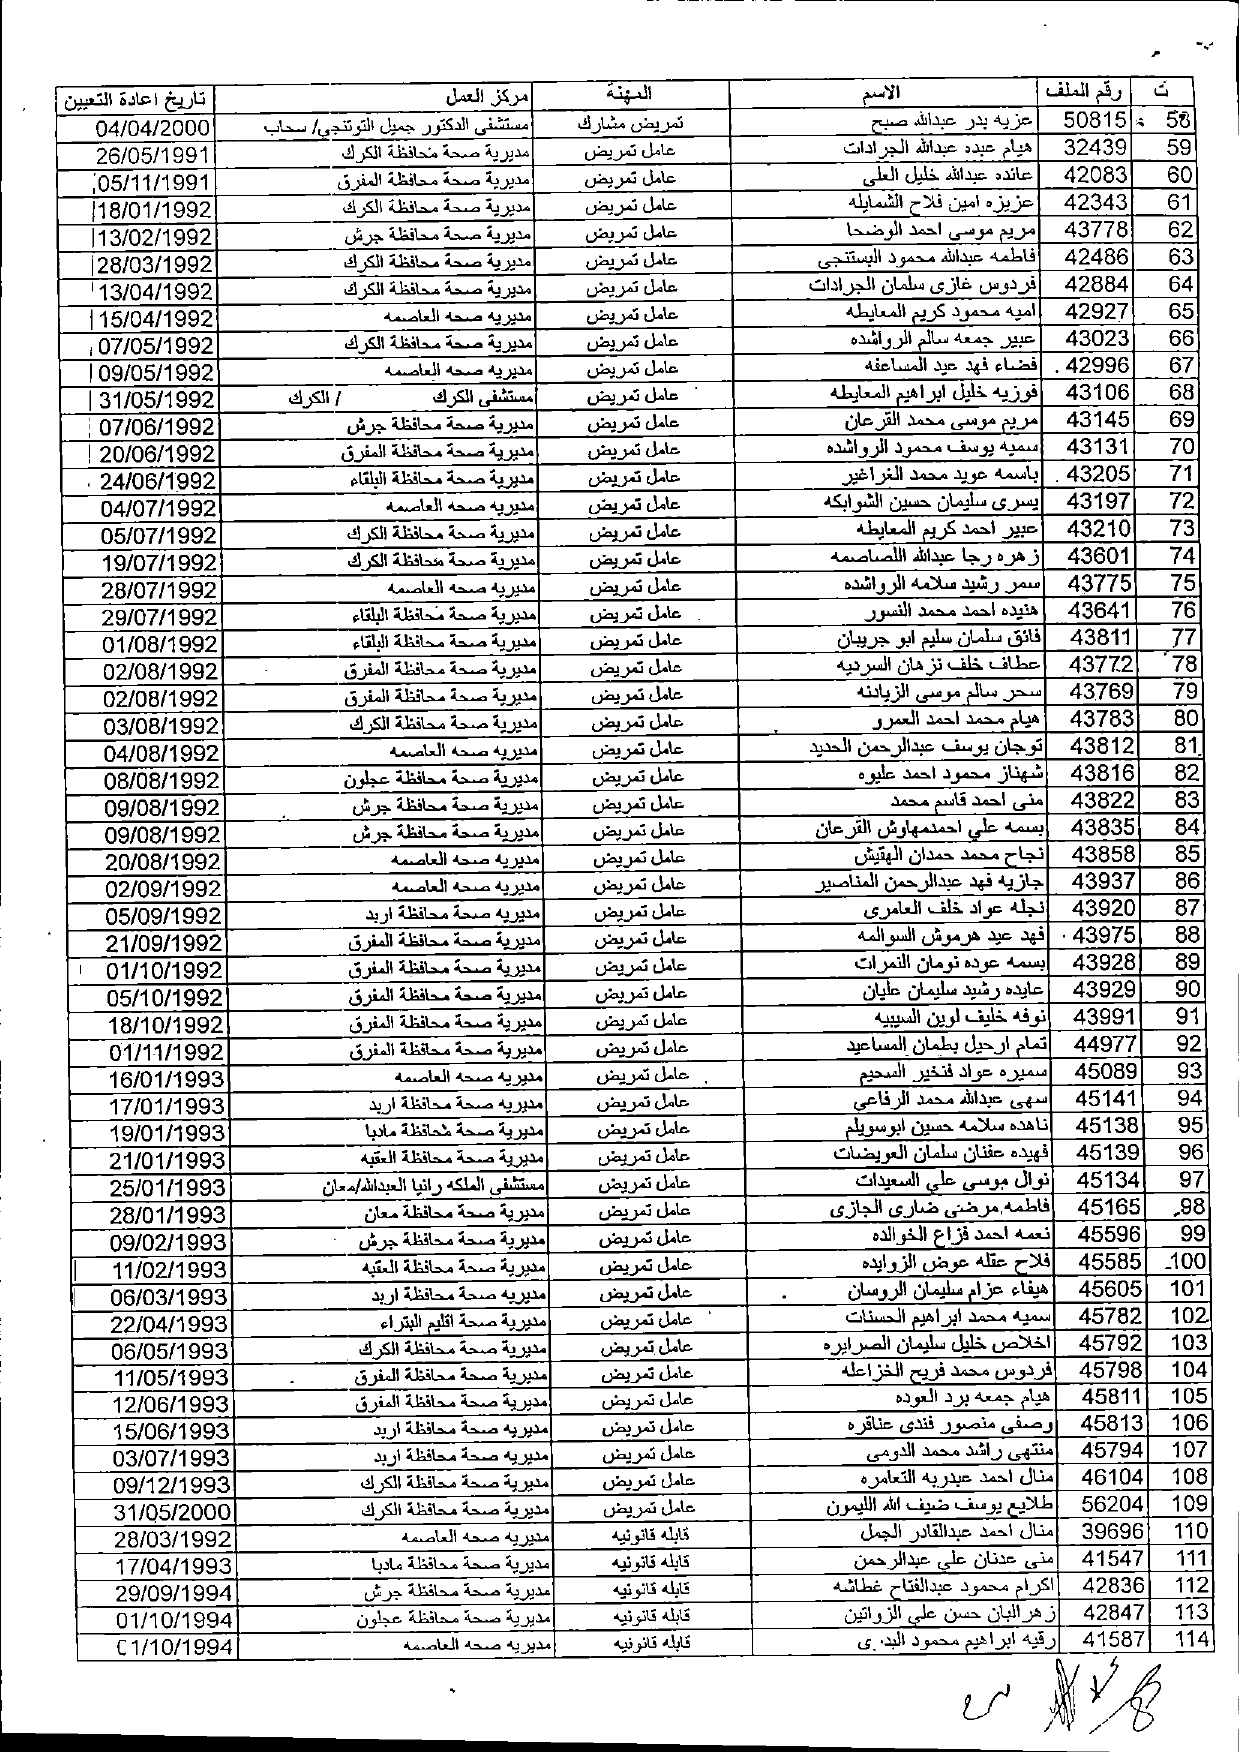 ت رقم الملف الاسم المهنة مركز العمل تاريخ اعادة التعيين
58 50815 عزيه بدر عبدالله صبح تمريض مشارك مستشفى الدكتور جميل التوتنجي/ سحاب 04/04/2000
59 32439 هيام عبده عبدالله الجرادات عامل تمريض مديرية صحة محافظة الكرك 26/05/1991
60 42083 عائده عبدالله خليل العلي عامل تمريض مديرية صحة محافظة المفرق 05/11/1991
61 42343 عزيزه امين فلاح الشمايله عامل تمريض مديرية صحة محافظة الكرك 18/01/1992
62 43778 مريم موسى احمد الوضحا عامل تمريض مديرية صحة محافظة جرش 13/02/1992
63 42486 فاطمه عبدالله محمود البستنجي عامل تمريض مديرية صحة محافظة الكرك 28/03/1992
64 42884 فردوس غازى سلمان الجرادات عامل تمريض مديرية صحة محافظة الكرك 13/04/1992
65 42927 اميه محمود كريم المعايطه عامل تمريض مديريه صحه العاصمه 15/04/1992
66 43023 عبير جمعه سالم الرواشده عامل تمريض مديرية صحة محافظة الكرك 07/05/1992
67 42996 فضاء فهد عيد المساعفه عامل تمريض مديريه صحه العاصمه 09/05/1992
68 43106 فوزيه خليل ابراهيم المعايطه عامل تمريض مستشفى الكرك / الكرك 31/05/1992
69 43145 مريم موسى محمد القرعان عامل تمريض مديرية صحة محافظة جرش 07/06/1992
70 43131 سميه يوسف محمود الرواشده عامل تمريض مديرية صحة محافظة المفرق 20/06/1992
71 43205 باسمه عويد محمد الغراغير عامل تمريض مديرية صحة محافظة البلقاء 24/06/1992
72 43197 يسرى سليمان حسين الشوابكه عامل تمريض مديريه صحه العاصمه 04/07/1992
73 43210 عبير احمد كريم المعايطه عامل تمريض مديرية صحة محافظة الكرك 05/07/1992
74 43601 زهره رجا عبدالله اللصاصمه عامل تمريض مديرية صحة محافظة الكرك 19/07/1992
75 43775 سمر رشيد سلامه الرواشده عامل تمريض مديريه صحه العاصمه 28/07/1992
76 43641 هنيده احمد محمد النسور عامل تمريض مديرية صحة محافظة البلقاء 29/07/1992
77 43811 فائق سلمان سليم ابو جريبان عامل تمريض مديرية صحة محافظة البلقاء 01/08/1992
78 43772 عطاف خلف نزهان السرديه عامل تمريض مديرية صحة محافظة المفرق 02/08/1992
79 43769 سحر سالم موسى الزيادنه عامل تمريض مديرية صحة محافظة المفرق 02/08/1992
80 43783 هيام محمد احمد العمرو عامل تمريض مديرية صحة محافظة الكرك 03/08/1992
81 43812 توجان يوسف عبدالرحمن الحديد عامل تمريض مديريه صحه العاصمه 04/08/1992
82 43816 شهناز محمود احمد عليوه عامل تمريض مديرية صحة محافظة عجلون 08/08/1992
83 43822 منى احمد قاسم محمد عامل تمريض مديرية صحة محافظة جرش 09/08/1992
84 43835 بسمه علي احمدمهاوش القرعان عامل تمريض مديرية صحة محافظة جرش 09/08/1992
85 43858 نجاح محمد حمدان الهقيش عامل تمريض مديريه صحه العاصمه 20/08/1992
86 43937 جازيه فهد عبدالرحمن المناصير عامل تمريض مديريه صحه العاصمه 02/09/1992
87 43920 نجله عواد خلف العامرى عامل تمريض مديريه صحة محافظة اربد 05/09/1992
88 43975 فهد عيد هرموش السوالمه عامل تمريض مديرية صحة محافظة المفرق 21/09/1992
89 43928 بسمه عوده نومان النمرات عامل تمريض مديرية صحة محافظة المفرق 01/10/1992
90 43929 عايده رشيد سليمان عليان عامل تمريض مديرية صحة محافظة المفرق 05/10/1992
91 43991 نوفه خليف لوين السيبيه عامل تمريض مديرية صحة محافظة المفرق 18/10/1992
92 44977 تمام ارحيل بطمان المساعيد عامل تمريض مديرية صحة محافظة المفرق 01/11/1992
93 45089 سميره عواد فنخير السحيم عامل تمريض مديريه صحه العاصمه 16/01/1993
94 45141 سهى عبدالله محمد الرفاعي عامل تمريض مديريه صحة محافظة اربد 17/01/1993
95 45138 ناهده سلامه حسين ابوسويلم عامل تمريض مديرية صحة محافظة مادبا 19/01/1993
96 45139 فهيده عفنان سلمان العريضات عامل تمريض مديرية صحة محافظة العقبه 21/01/1993
97 45134 نوال موسى علي السعيدات عامل تمريض مستشفى الملكه رانيا العبدالله/معان 25/01/1993
98 45165 فاطمه مرضي ضارى الجازى عامل تمريض مديرية صحة محافظة معان 28/01/1993
99 45596 نعمه احمد فزاع الخوالده عامل تمريض مديرية صحة محافظة جرش 09/02/1993
100 45585 فلاح عقله عوض الزوايده عامل تمريض مديرية صحة محافظة العقبه 11/02/1993
101 45605 هيفاء عزام سليمان الروسان عامل تمريض مديريه صحة محافظة اربد 06/03/1993
102 45782 سميه محمد ابراهيم الحسنات عامل تمريض مديرية صحة اقليم البتراء 22/04/1993
103 45792 اخلاص خليل سليمان الصرايره عامل تمريض مديرية صحة محافظة الكرك 06/05/1993
104 45798 فردوس محمد فريح الخزاعله عامل تمريض مديرية صحة محافظة المفرق 11/05/1993
105 45811 هيام جمعه برد العوده عامل تمريض مديرية صحة محافظة المفرق 12/06/1993
106 45813 وصفى منصور فندى عناقره عامل تمريض مديريه صحة محافظة اربد 15/06/1993
107 45794 منتهى راشد محمد الدومى عامل تمريض مديريه صحة محافظة اربد 03/07/1993
108 46104 منال احمد عبدربه التعامره عامل تمريض مديرية صحة محافظة الكرك 09/12/1993
109 56204 طلايع يوسف ضيف الله الليمون عامل تمريض مديرية صحة محافظة الكرك 31/05/2000
110 39696 منال احمد عبدالقادر الجمل قابله قانونيه مديريه صحه العاصمه 28/03/1992
111 41547 منى عدنان علي عبدالرحمن قابله قانونيه مديرية صحة محافظة مادبا 17/04/1993
112 42836 اكرام محمود عبدالفتاح غطاشه قابله قانونيه مديرية صحة محافظة جرش 29/09/1994
113 42847 زهرالبان حسن علي الزواتين قابله قانونيه مديرية صحة محافظة عجلون 01/10/1994
114 41587 رقيه ابراهيم محمود قابله قانونيه مديريه صحه العاصمه 01/10/1994